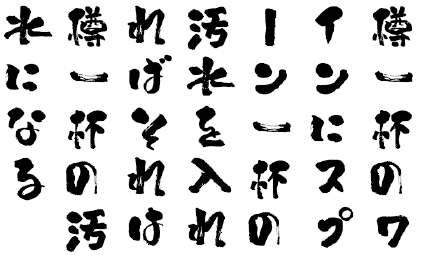 樽一杯のワ
インにスプ
ーン一杯の
汚水を入れ
ればそれは
樽一杯の汚
水になる